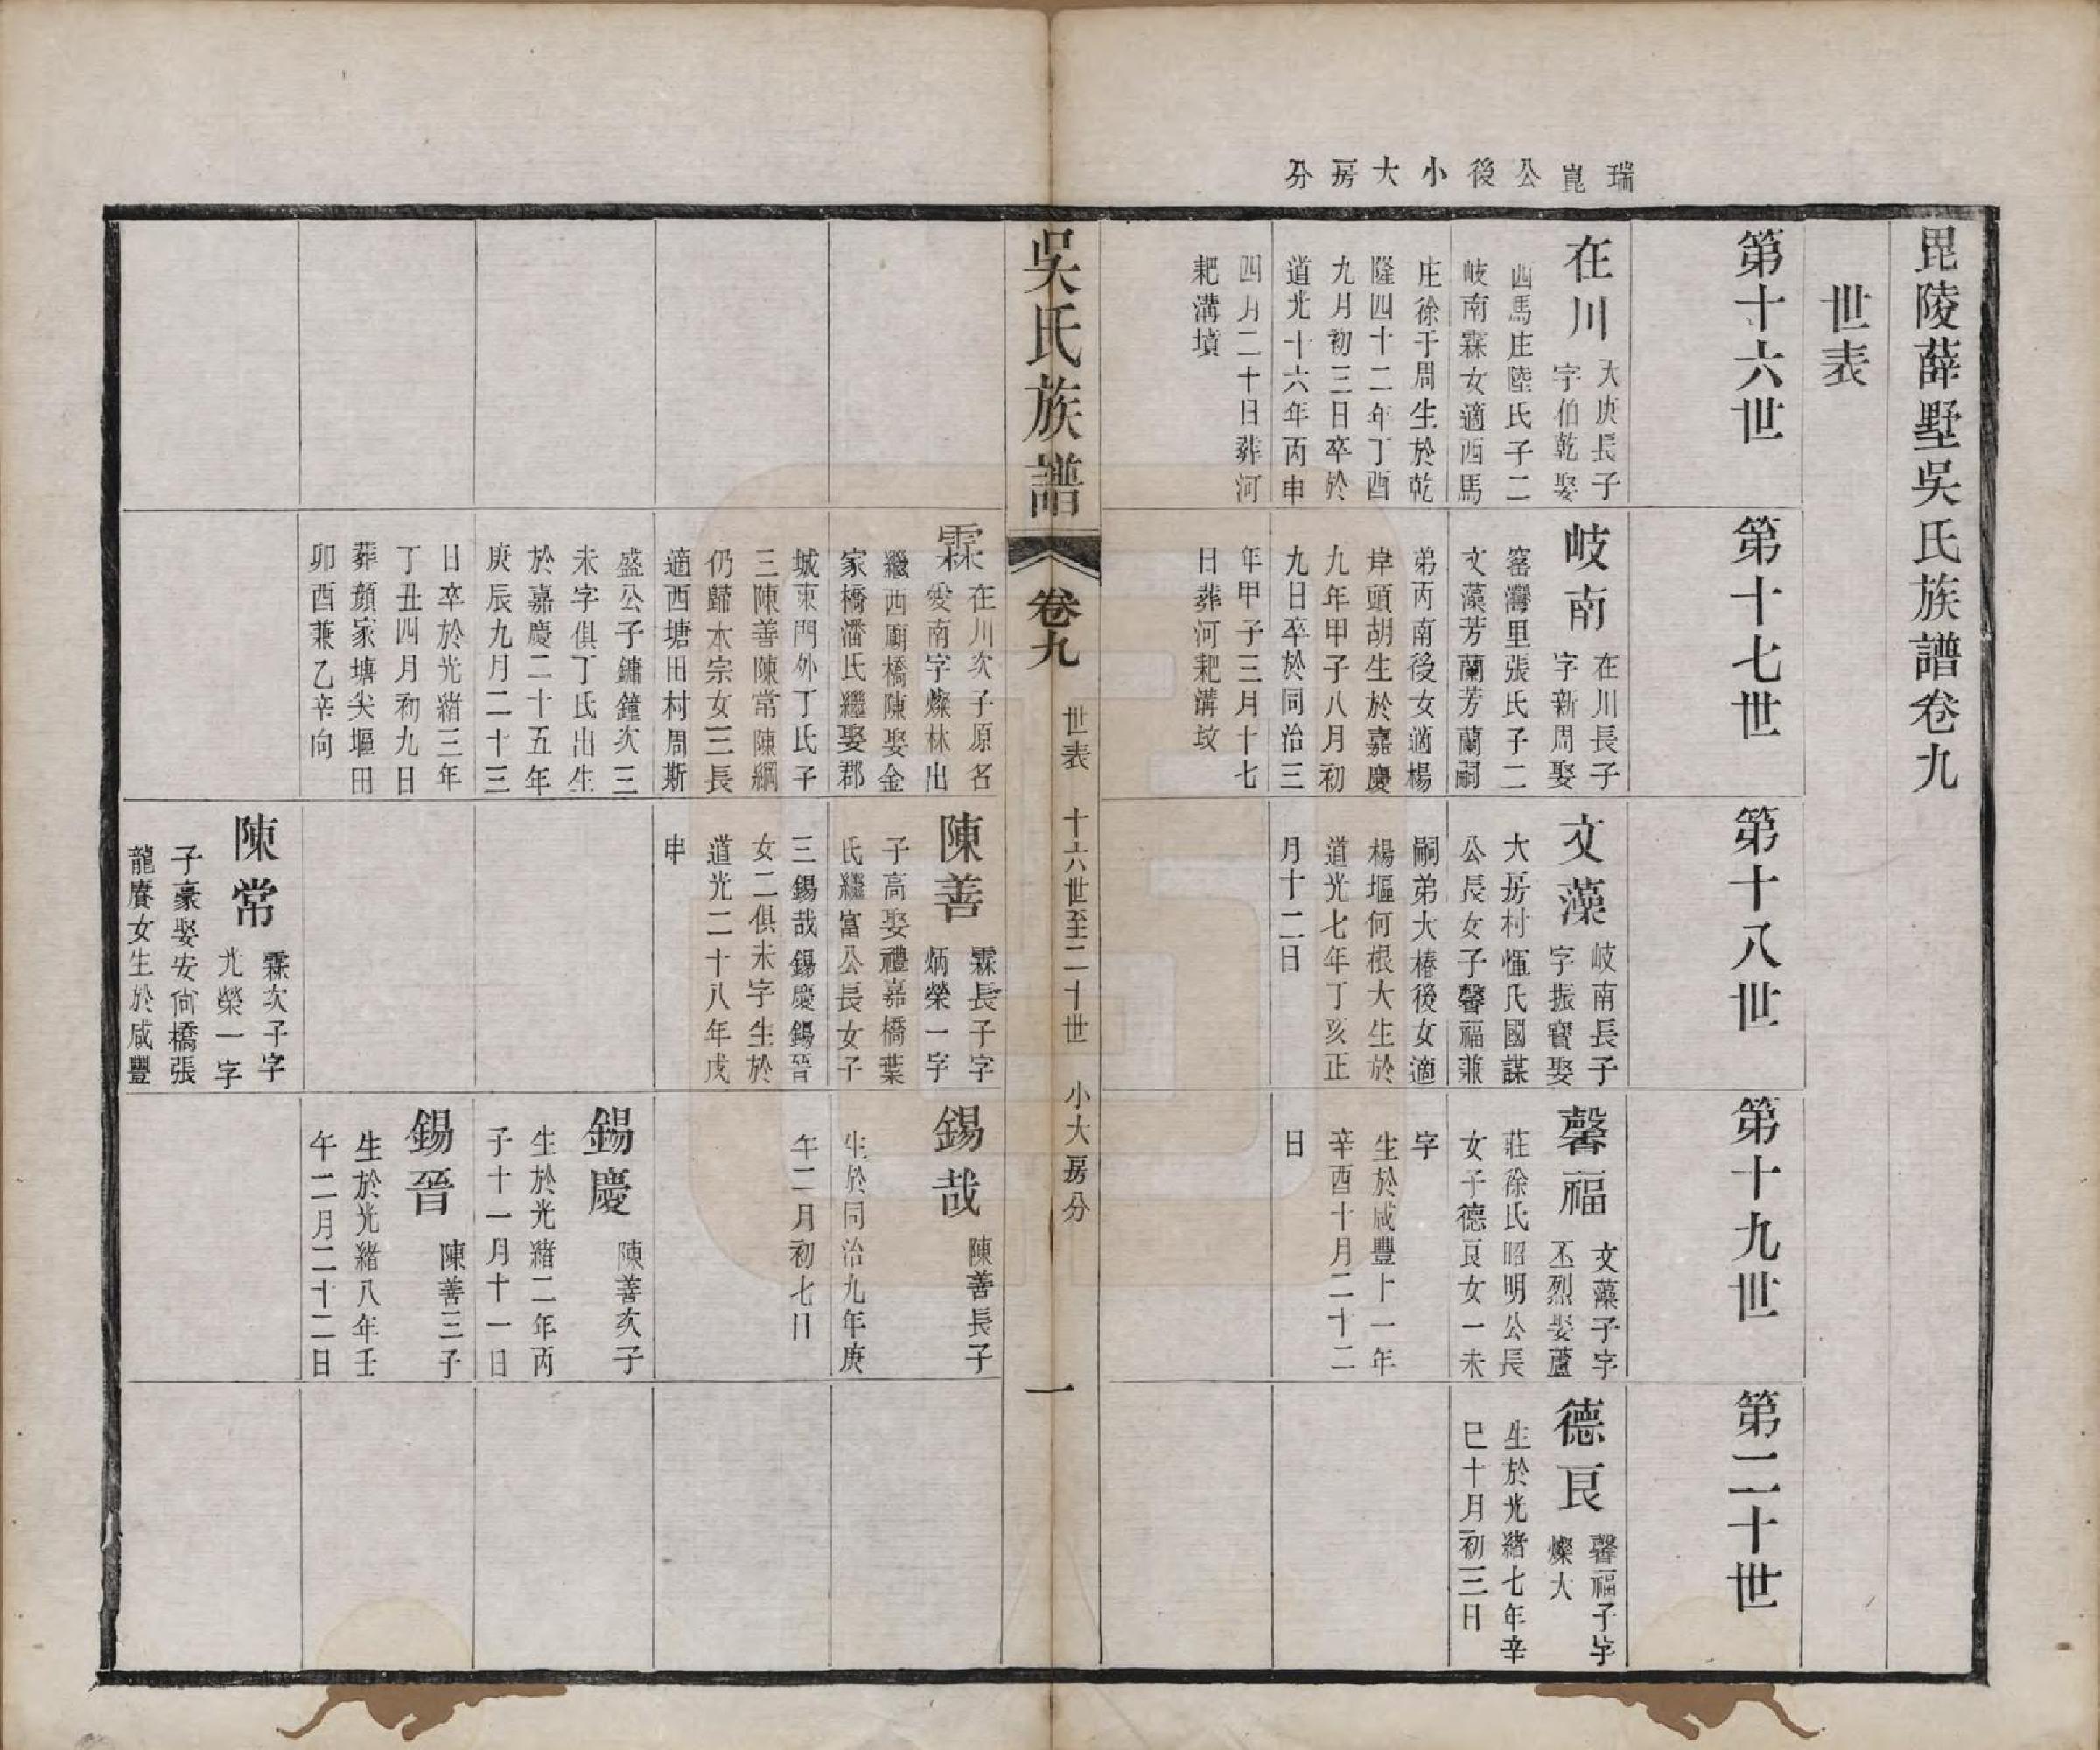 瑞崑公後小大房分
毘陵薛墅吳氏族譜卷九
世表
第十六世
第十七世
第十八世
第十九世
第二十世
在川
大庚長子
字伯乾娶
西馬庄陸氏子二
岐南霖女適西馬
庄徐于周生於乾
隆四十二年丁酉
九月初三日卒於
道光十六年丙申
四月二十日葬河
耙溝墳
岐南
在川長子
字新周娶
窰灣里張氏子二
文藻芳蘭芳蘭嗣
弟丙南後女適楊
埄頭胡生於嘉慶
九年甲子八月初
九日卒於同治三
年甲子三月十七
日葬河耙溝坟
文藻
岐南長子
字振寶娶
大房村惲氏國謀
公長女子馨福兼
嗣弟大椿後女適
楊堰何根大生於
道光七年丁亥正
月十二日
馨福
文藻子字
丕烈娶蘆
莊徐氏昭明公長
女子德艮女一未
字
生於咸豐十一年
辛酉十月二十二
日
德艮
馨福子字
燦大
生於光緒七年辛
巳十月初三日
吳氏族譜
卷九
世表
十六世至二十世
小大房分
一
霖
在川次子原名
愛南字燦林出
繼西廟橋陳娶金
家橋潘氏繼娶郡
城東門外丁氏子
三陳善陳常陳綱
仍歸本宗女三長
適西塘田村周斯
盛公子鏞鐘次三
未字俱丁氏出生
於嘉慶二十五年
庚辰九月二十三
日卒於光緒三年
丁丑四月初九日
葬顔家塘尖堰田
卯酉兼乙辛向
陳善
霖長子字
炳榮一字
子高娶禮嘉橋葉
氏繼富公長女子
三錫哉錫慶錫晉
女二俱未字生於
道光二十八年戊
申
錫哉
陳善長子
生於同治九年庚
午二月初七日
錫慶
陳善次子
生於光緒二年丙
子十一月十一日
錫晉
陳善三子
生於光緒八年壬
午二月二十二日
陳常
霖次子字
光榮一字
子豪娶安尙橋張
龍賡女生於咸豐